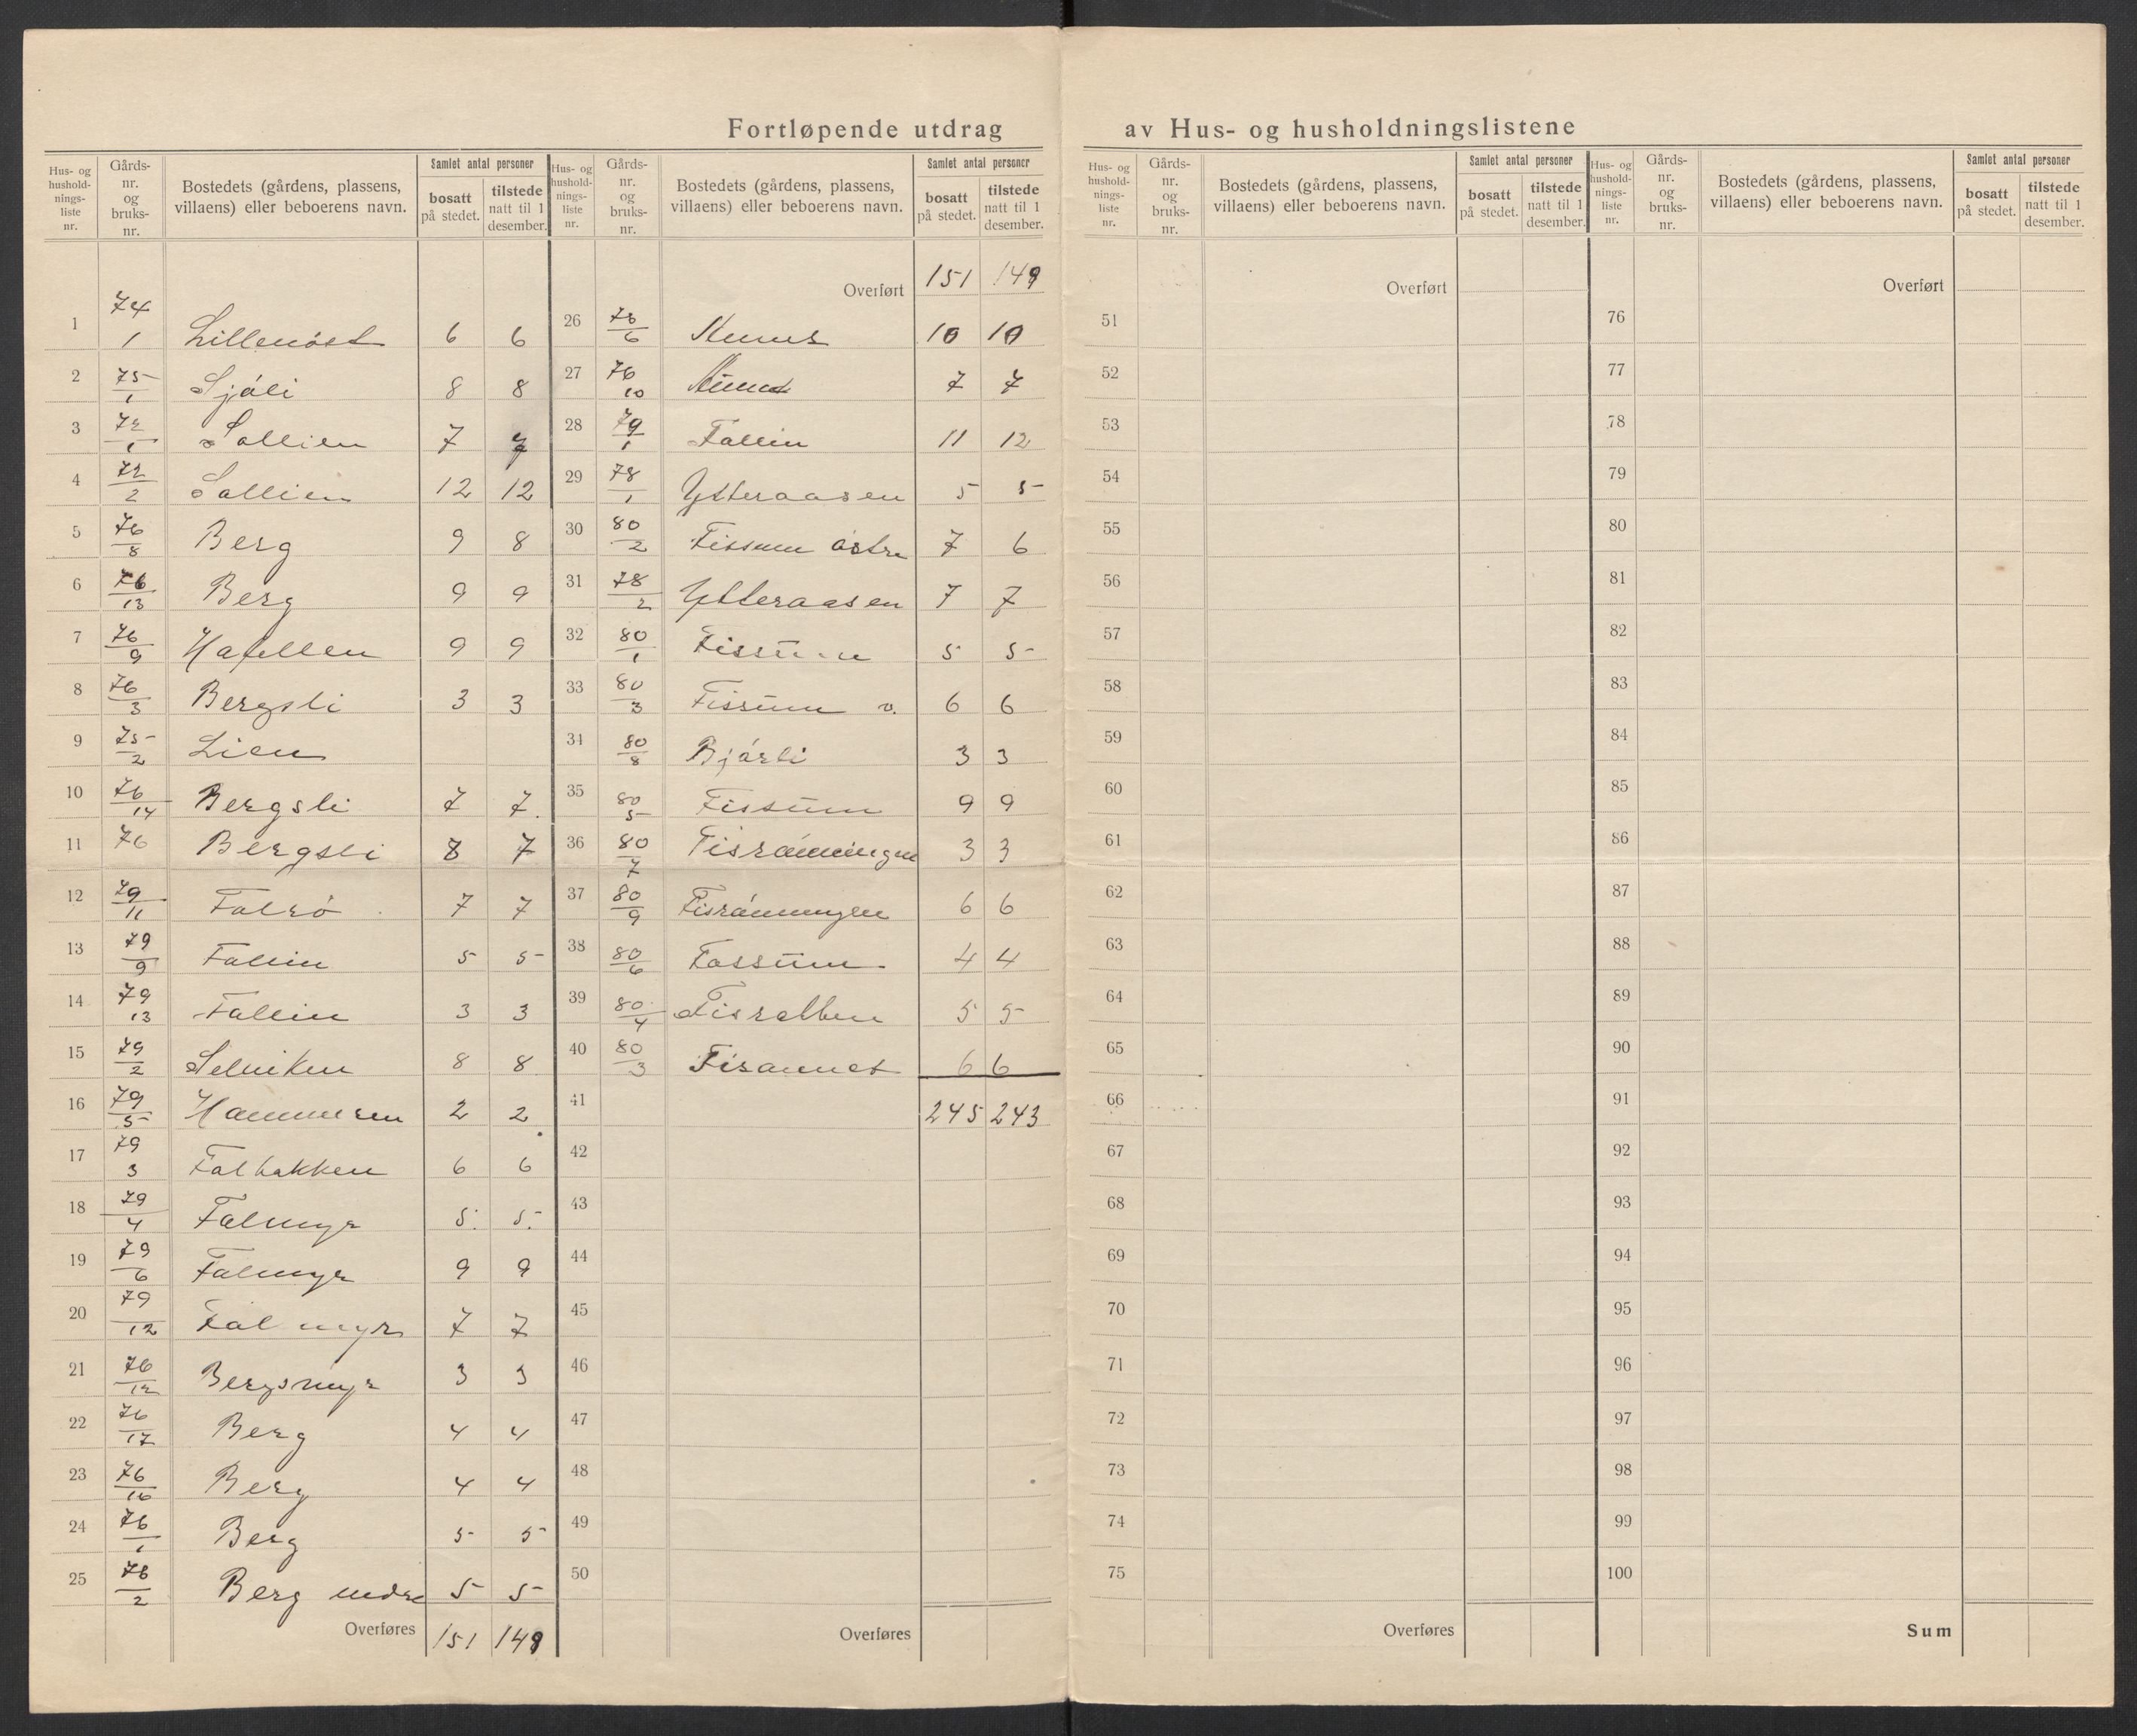 Fortløpende utdrag av Hus- og husholdningslistene
Hus- og husholdningsliste nr. | Gårds-nr. og bruks-nr. | Bostedets (gårdens, plassens, villaens) eller beboerens navn. | Samlet antal personer | bosatt på stedet. | tilstede natt til 1 desember.
1 74/1 Lillenöst 6 6
2 75/1 Sjåli 8 8
3 72/1 Sollien 7 7
4 72/2 Sollien 12 12
5 76/8 Berg 9 8
6 76/13 Berg 9 9
7 76/9 9 9
8 76/3 Bergsli 3 3
9 75/2 Lien
10 76/14 Bergsli 7 7
11 76 Bergsli 8 7
12 79/11 Falrö 7 7
13 79/9 Fallin 5 5
14 79/13 Fallin 3 3
15 79/2 Selviken 8 8
16 79/5 2 2
17 79/3 Falbakken 6 6
18 79/4 Falmyr 5 5
19 79/6 Falmyr 9 9
20 79/12 Falmyr 7 7
21 76/12 Bergsmyr 3 3
22 76/17 Berg 4 4
23 76/16 Berg 4 4
24 76/1 Berg 5 5
25 76/2 Berg nedre 5 5
Overføres 151 149
Hus- og husholdningsliste nr. | Gårds-nr. og bruks-nr. | Bostedets (gårdens, plassens, villaens) eller beboerens navn. | Samlet antal personer | bosatt på stedet. | tilstede natt til 1 desember.
Overført 151 149
26 76/6 10 10
27 76/10 7 7
28 79/1 Fallin 11 12
29 78/1 Ytteraasen 5 5
30 80/2 Fissum östre 7 6
31 78/2 Ytteraasen 7 7
32 80/1 Fissum 5 5
33 80/3 Fissum v. 6 6
34 80/8 Bjårli 3 3
35 80/5 Fissum 9 9
36 80/7 Fisrönningen 3 3
37 80/9 Fisrönningen 6 6
38 80/6 Fossum 4 4
39 80/4 Fisrabben 5 5
40 80/3 6 6
41 245 243
42
43
44
45
46
47
48
49
50
Overføres
Hus- og husholdningsliste nr. | Gårds-nr. og bruks-nr. | Bostedets (gårdens, plassens, villaens) eller beboerens navn. | Samlet antal personer | bosatt på stedet. | tilstede natt til 1 desember.
Overført
51
52
53
54
55
56
57
58
59
60
61
62
63
64
65
66
67
68
69
70
71
72
73
74
75
Overføres
Hus- og husholdningsliste nr. | Gårds-nr. og bruks-nr. | Bostedets (gårdens, plassens, villaens) eller beboerens navn. | Samlet antal personer | bosatt på stedet. | tilstede natt til 1 desember.
Overført
76
77
78
79
80
81
82
83
84
85
86
87
88
89
90
91
92
93
94
95
96
97
98
99
100
Sum